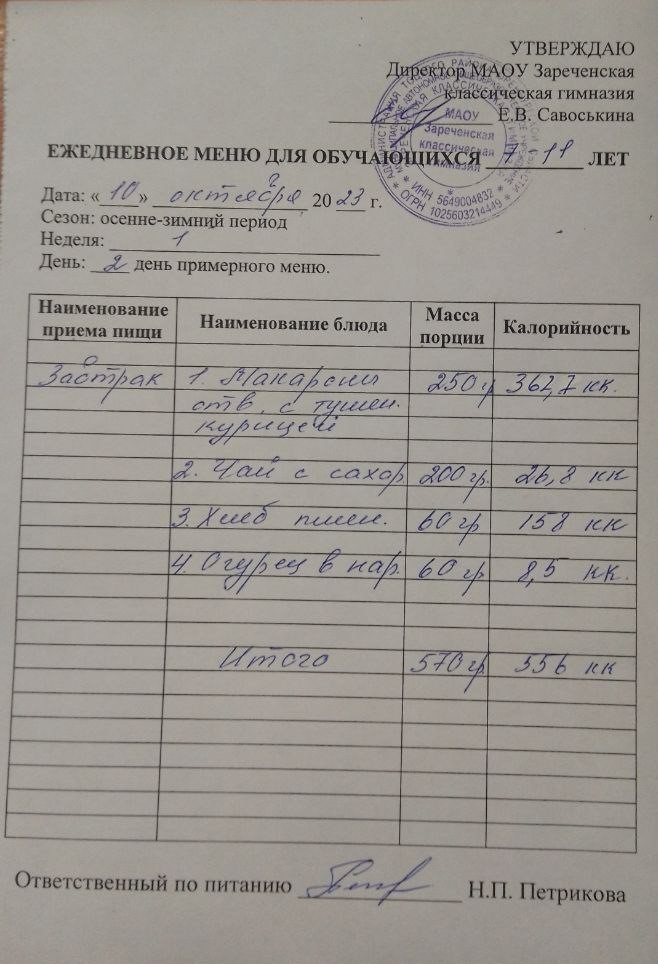 УТВЕРЖДАЮ
Директор МАОУ Зареченская
классическая гимназия
Е.В. Савоськина
МАОУ
Зареченская
классическая
гимназия
* ИНН 5649004832 *
ОГРН 1025603214449
ЕЖЕДНЕВНОЕ МЕНЮ ДЛЯ ОБУЧАЮЩИХСЯ 7 - 11 ЛЕТ
Дата: «10» октября 20 23 г.
Сезон: осенне-зимний период
Неделя: 1
День: 2 день примерного меню.
Наименование приема пищи Наименование блюда Масса порции Калорийность
Завтрак 1. Макароны 250 гр 362,7 кк.
отв. с тушен.
курицей
2. Чай с сахар 200 гр. 26,8 кк
3. Хлеб пшен. 60 гр 158 кк
4. Огурец в нар. 60 гр 8,5 кк.
Итого 570 гр 556 кк
Ответственный по питанию Н.П. Петрикова